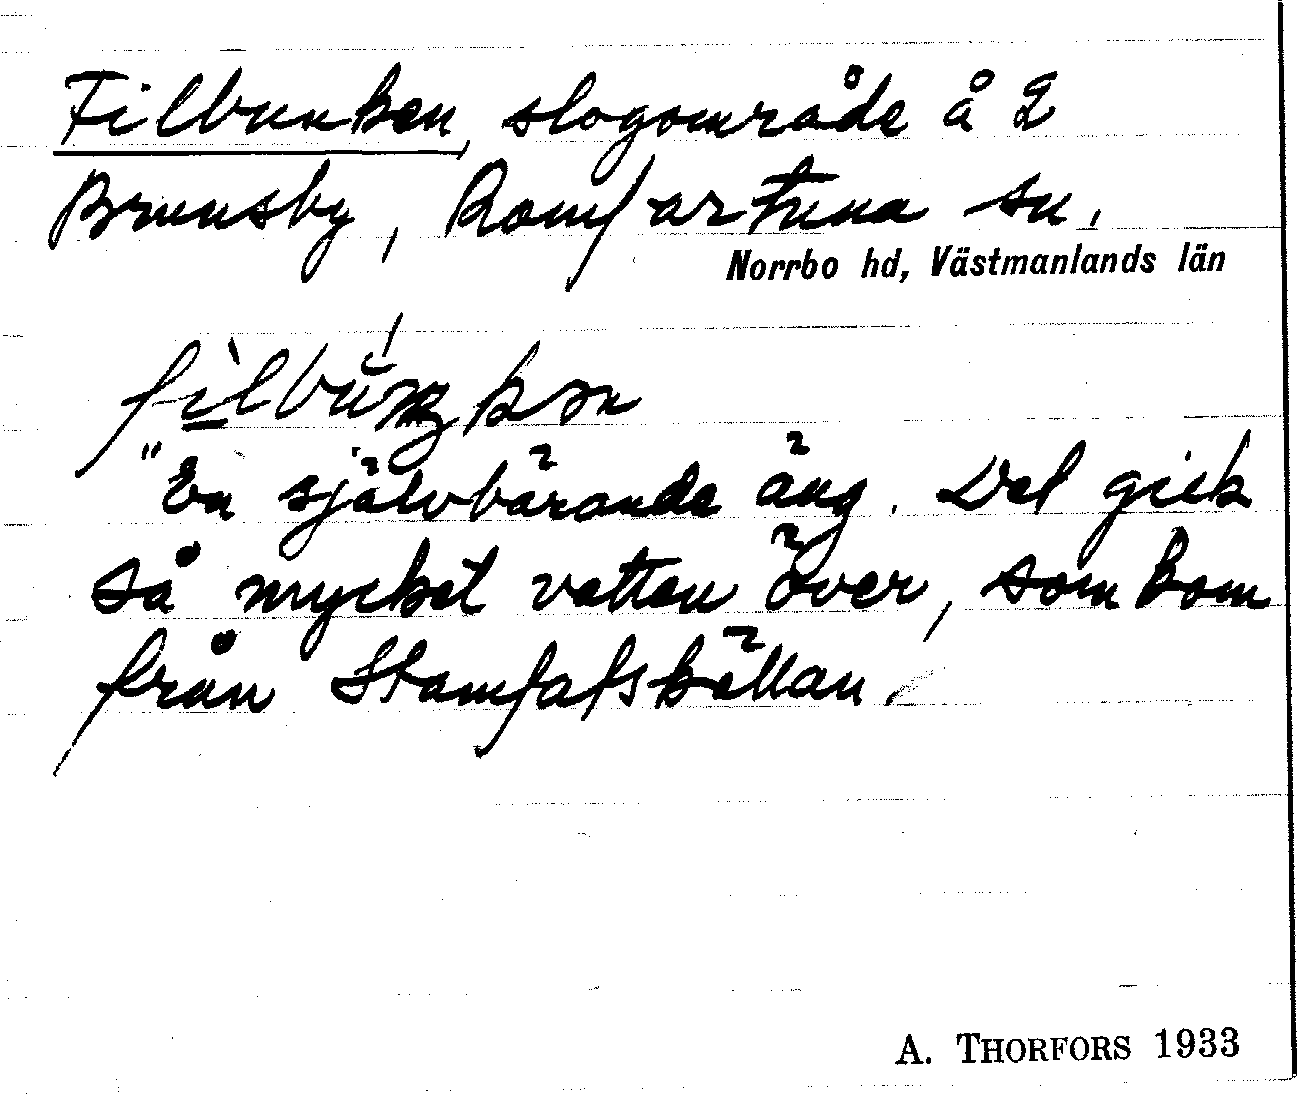 Filbunken, slogområde å 2
Brunsby, Romfartuna sn.
Norrbo hd, Västmanlands län
"En självbärande äng. Det gick
så mycket vatten över, som kom
från Stamfafskällan.
A. THORFORS 1933